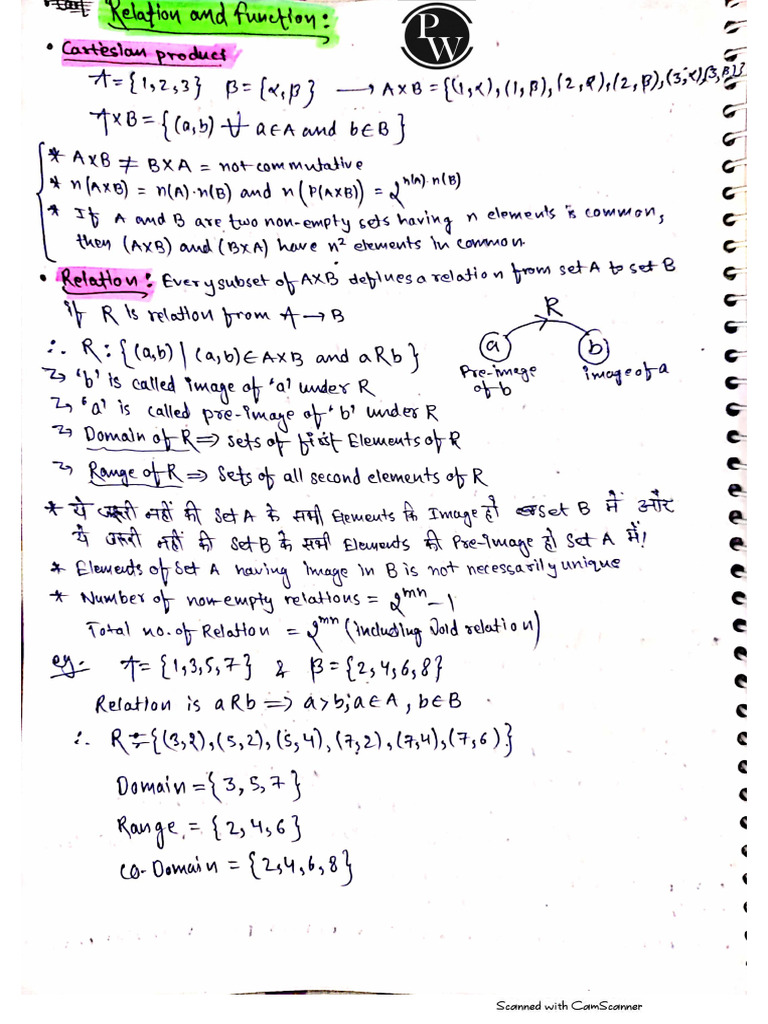 Relation and function:
PW
• Cartesian product
A = {1,2,3} B = {α,β} → A×B = {(1,α),(1,β),(2,α),(2,β),(3,α),(3,β)}
A×B = {(a,b) ∀ a∈A and b∈B}
* A×B ≠ B×A = not commutative
* n(A×B) = n(A)·n(B) and n(P(A×B)) = 2^n(A)·n(B)
* If A and B are two non-empty sets having n elements is common,
then (A×B) and (B×A) have n² elements in common.
• Relation: Every subset of A×B defines a relation from set A to set B
if R is relation from A → B
R
∴ R: {(a,b) | (a,b)∈A×B and aRb}
a b
Pre-image of b
image of a
→ 'b' is called image of 'a' under R
→ 'a' is called pre-image of 'b' under R
→ Domain of R ⇒ sets of first Elements of R
→ Range of R ⇒ Sets of all second elements of R
* ये जरूरी नहीं की Set A के सभी Elements कि Image हो Set B में और
ये जरूरी नहीं की Set B के सभी Elements की Pre-Image हो Set A में!
* Elements of Set A having image in B is not necessarily unique
* Number of non-empty relations = 2^mn - 1
Total no. of Relation = 2^mn (including Void relation)
eg. A = {1,3,5,7} & B = {2,4,6,8}
Relation is aRb ⇒ a>b; a∈A, b∈B
∴ R = {(3,2),(5,2),(5,4),(7,2),(7,4),(7,6)}
Domain = {3,5,7}
Range = {2,4,6}
co-Domain = {2,4,6,8}
Scanned with CamScanner